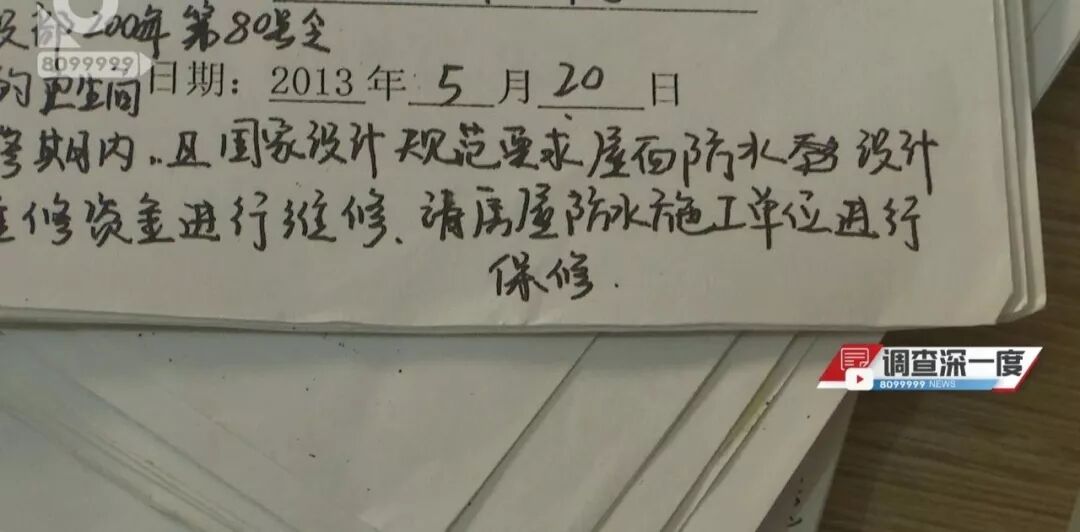 部200年第80号令
8099999
的卫生间日期：2013年5月20日
期内，且国家设计规范要求屋面防水设计
修资金进行维修、请原屋防水施工单位进行
保修.
调查深一度
8099999 NEWS